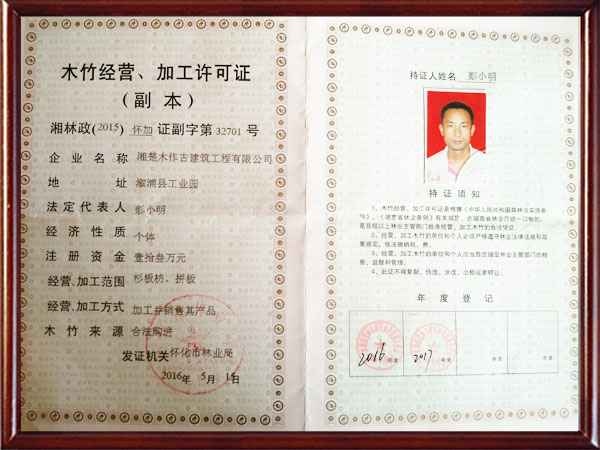 木竹经营、加工许可证
(副本)
湘林政(2015) 怀加 证副字第 32701 号
企业名称 湘楚木作古建筑工程有限公司
地址 溆浦县工业园
法定代表人 彭小明
经济性质 个体
注册资金 壹拾叁万元
经营、加工范围 杉板枋、拼板
经营、加工方式 加工并销售其产品
木竹来源 合法购进
发证机关 怀化市林业局
2016年 5月 1日
持证人姓名 彭小明
持证须知
1、木竹经营、加工许可证是根据《中华人民共和国森林法实施条
例》、《湖南省林业条例》有关规定，由湖南省林业厅统一印制的，
是县级以上林业主管部门批准经营、加工木竹的合法凭证。
2、经营、加工木竹的单位和个人必须严格遵守林业法律法规和政
策规定，依法缴纳税、费。
3、经营、加工木竹的单位和个人应当自觉接受林业主管部门的检
查、监督和管理。
4、此证不得复制、伪造、涂改、出租或者转让。
年度登记
2016 年度 2017 年度 年度 年度